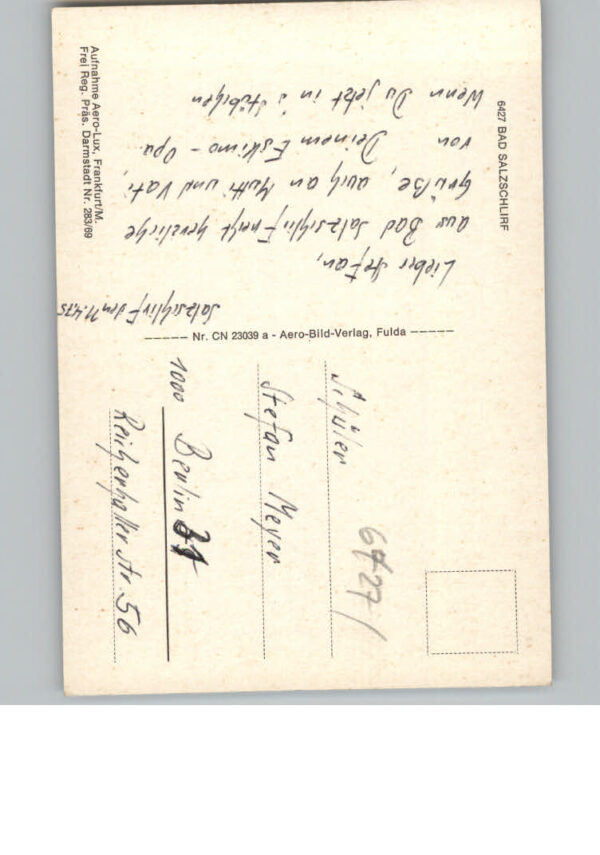 6427 BAD SALZSCHLIRF
Salzschlirf den 11.4.75
Lieber Stefan,
aus Bad Salzschlirf recht herzliche
Grüße, auch an Mutti und Vati,
von Deinem Eskimo - Opa.
Wenn Du jetzt in
Aufnahme Aero-Lux, Frankfurt/M.
Frei Reg. Präs. Darmstadt Nr. 283/69
Nr. CN 23039 a - Aero-Bild-Verlag, Fulda
6427/
Schüler
Stefan Meyer
1000 Berlin
Reichenhaller Str. 56